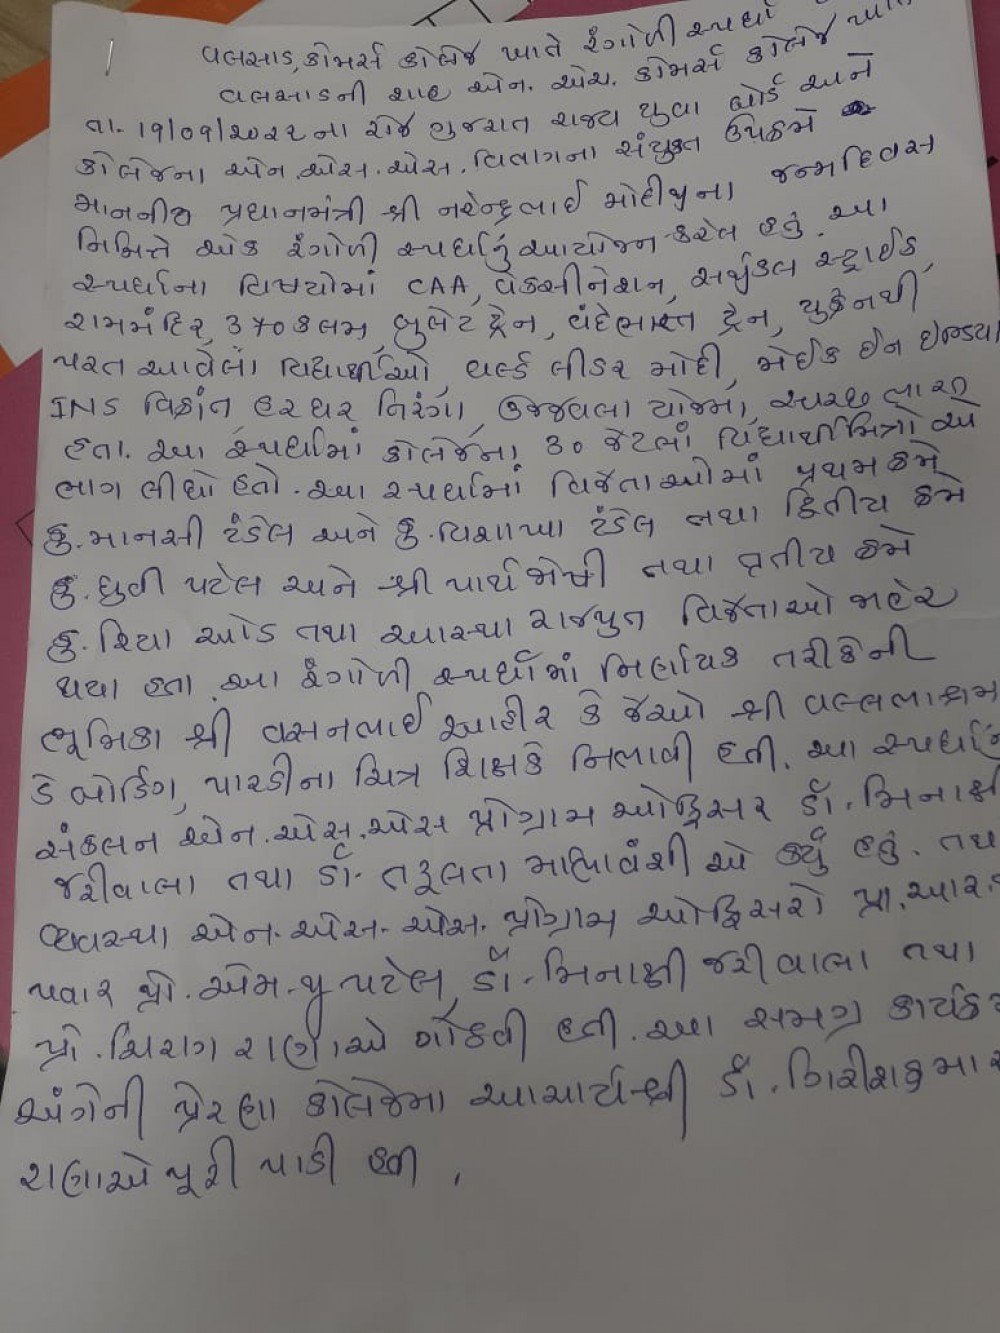 વલસાડ, કોમર્સ કોલેજ ખાતે રંગોળી સ્પર્ધા
વલસાડની શાહ એન. એચ. કોમર્સ કોલેજ ખાતે
તા. 19/09/2022 ના રોજ ગુજરાત રાજ્ય યુવા બોર્ડ અને
કોલેજના એન.એસ.એસ. વિભાગના સંયુક્ત ઉપક્રમે
માનનીય પ્રધાનમંત્રી શ્રી નરેન્દ્રભાઈ મોદીજીના જન્મદિવસ
નિમિત્તે એક રંગોળી સ્પર્ધાનું આયોજન કરેલ હતું. આ
સ્પર્ધાના વિષયોમાં CAA, વેકસીનેશન, સર્જીકલ સ્ટ્રાઈક,
રામમંદિર, 370 કલમ, બુલેટ ટ્રેન, વંદેભારત ટ્રેન, યુક્રેનથી
પરત આવેલા વિદ્યાર્થીઓ, વર્લ્ડ લીડર મોદી, મેઈક ઈન ઈન્ડિયા
INS વિક્રાંત હર ઘર તિરંગા, ઉજ્જવલા યોજના, સ્વચ્છ ભારત
હતા. આ સ્પર્ધામાં કોલેજના 30 જેટલાં વિદ્યાર્થીમિત્રોએ
ભાગ લીધો હતો. આ સ્પર્ધામાં વિજેતાઓમાં પ્રથમ ક્રમે
કુ. માનસી ટંડેલ અને કુ. વિશાખા ટંડેલ તથા દ્વિતીય ક્રમે
કુ. ધ્રુવી પટેલ અને શ્રી પાર્થ જોષી તથા તૃતીય ક્રમે
કુ. રિયા ઓડ તથા આસ્થા રાજપુત વિજેતાઓ જાહેર
થયા હતા. આ રંગોળી સ્પર્ધામાં નિર્ણાયક તરીકેની
ભૂમિકા શ્રી વસનભાઈ આહીર કે જેઓ શ્રી વલ્લભાશ્રમ
ડે બોર્ડિંગ, પારડીના ચિત્ર શિક્ષકે નિભાવી હતી. આ સ્પર્ધાનું
સંકલન એન.એસ.એસ પ્રોગ્રામ ઓફિસર ડૉ. મિનાક્ષી
જરીવાલા તથા ડૉ. તરૂલતા માહ્યાવંશી એ કર્યું હતું. તથા
વ્યવસ્થા એન.એસ.એસ. પ્રોગ્રામ ઓફિસરો પ્રા. આર.
પવાર પ્રો. એમ.યુ પટેલ, ડૉ. મિનાક્ષી જરીવાલા તથા
પ્રો. ચિરાગ રાણાએ ગોઠવી હતી. આ સમગ્ર કાર્યક્રમ
અંગેની પ્રેરણા કોલેજના આચાર્યશ્રી ડૉ. ગિરીશકુમાર
રાણાએ પૂરી પાડી હતી.